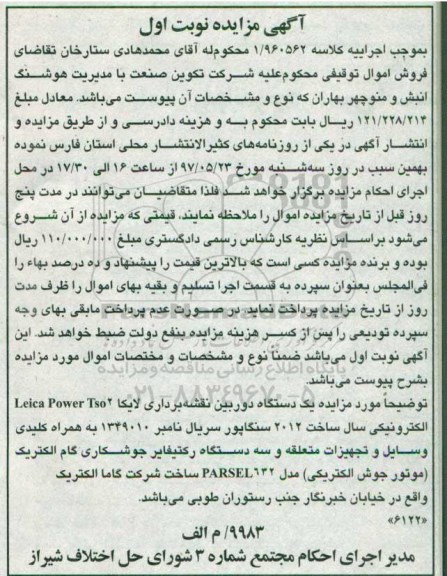 آگهی مزایده نوبت اول
بموجب اجراییه کلاسه ۱/۹۶۰۵۶۲ محکوم‌له آقای محمدهادی ستارخان تقاضای
فروش اموال توقیفی محکوم‌علیه شرکت تکوین صنعت با مدیریت هوشنگ
انبش و منوچهر بهاران که نوع و مشخصات آن پیوست می‌باشد. معادل مبلغ
۱۲۱/۲۲۸/۲۱۴ ریال بابت محکوم به و هزینه دادرسی و از طریق مزایده و
انتشار آگهی در یکی از روزنامه‌های کثیرالانتشار محلی استان فارس نموده
بهمین سبب در روز سه‌شنبه مورخ ۹۷/۰۵/۲۳ از ساعت ۱۶ الی ۱۷/۳۰ در محل
اجرای احکام مزایده برگزار خواهد شد فلذا متقاضیان می‌توانند در مدت پنج
روز قبل از تاریخ مزایده اموال را ملاحظه نمایند. قیمتی که مزایده از آن شروع
می‌شود براساس نظریه کارشناس رسمی دادگستری مبلغ ۱۱۰/۰۰۰/۰۰۰ ریال
بوده و برنده مزایده کسی است که بالاترین قیمت را پیشنهاد و ده درصد بهاء را
فی‌المجلس بعنوان سپرده به قسمت اجرا تسلیم و بقیه بهای اموال را ظرف مدت
روز از تاریخ مزایده پرداخت نماید در صورت عدم پرداخت مابقی بهای وجه
سپرده تودیعی را پس از کسر هزینه مزایده بنفع دولت ضبط خواهد شد. این
آگهی نوبت اول می‌باشد ضمناً نوع و مشخصات و مختصات اموال مورد مزایده
بشرح پیوست می‌باشد.
توضیحاً مورد مزایده یک دستگاه دوربین نقشه‌برداری لایکا Leica Power Tso۲
الکترونیکی سال ساخت ۲۰۱۲ سنگاپور سریال نامبر ۱۳۴۹۰۱۰ به همراه کلیدی
وسایل و تجهیزات متعلقه و سه دستگاه رکتیفایر جوشکاری گام الکتریک
(موتور جوش الکتریکی) مدل PARSEL۶۳۲ ساخت شرکت گاما الکتریک
واقع در خیابان خبرنگار جنب رستوران طوبی می‌باشد.
«۶۱۲۲»
۹۹۸۳/ م الف
مدیر اجرای احکام مجتمع شماره ۳ شورای حل اختلاف شیراز
پایگاه اطلاع رسانی مناقصه و مزایده
۰۲۱-۸۸۳۴۹۶۷۰-۵